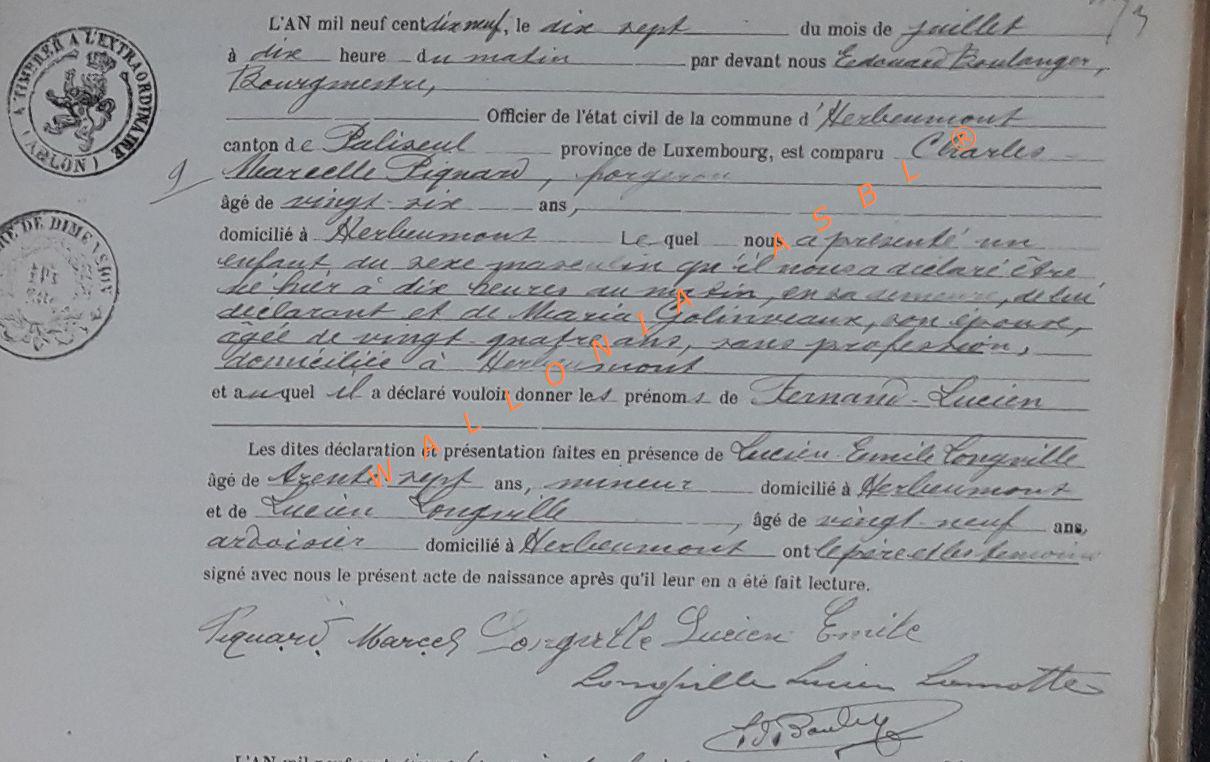 L'AN mil neuf cent dix neuf, le dix sept du mois de juillet
à dix heure du matin par devant nous Edouard Boulanger,
Bourgmestre,
Officier de l'état civil de la commune d'Herbeumont
canton de Paliseul province de Luxembourg, est comparu Charles
9 Marcelle Pignard, forgeron
âgé de vingt-six ans,
domicilié à Herbeumont Lequel nous a présenté un
enfant du sexe masculin qu'il nous a déclaré être
né hier à dix heures du matin, en sa demeure, de lui
déclarant et de Maria Golinvaux, son épouse,
âgée de vingt-quatre ans, sans profession,
domiciliée à Herbeumont
et auquel il a déclaré vouloir donner les prénoms de Fernand-Lucien
Les dites déclaration et présentation faites en présence de Lucien-Emile Longville
âgé de trente-sept ans, mineur domicilié à Herbeumont
et de Lucien Longville, âgé de vingt-neuf ans,
ardoisier domicilié à Herbeumont ont le père et les témoins
signé avec nous le présent acte de naissance après qu'il leur en a été fait lecture.
Piquard Marcel Longville Lucien Emile
Longville Lucien Lamotte
Ed. Boulanger
A TIMBRER A L'EXTRAORDINAIRE
(ARLON)
DE DIMENSION
WALLONIA ASBL ®
L'AN mil neuf cent